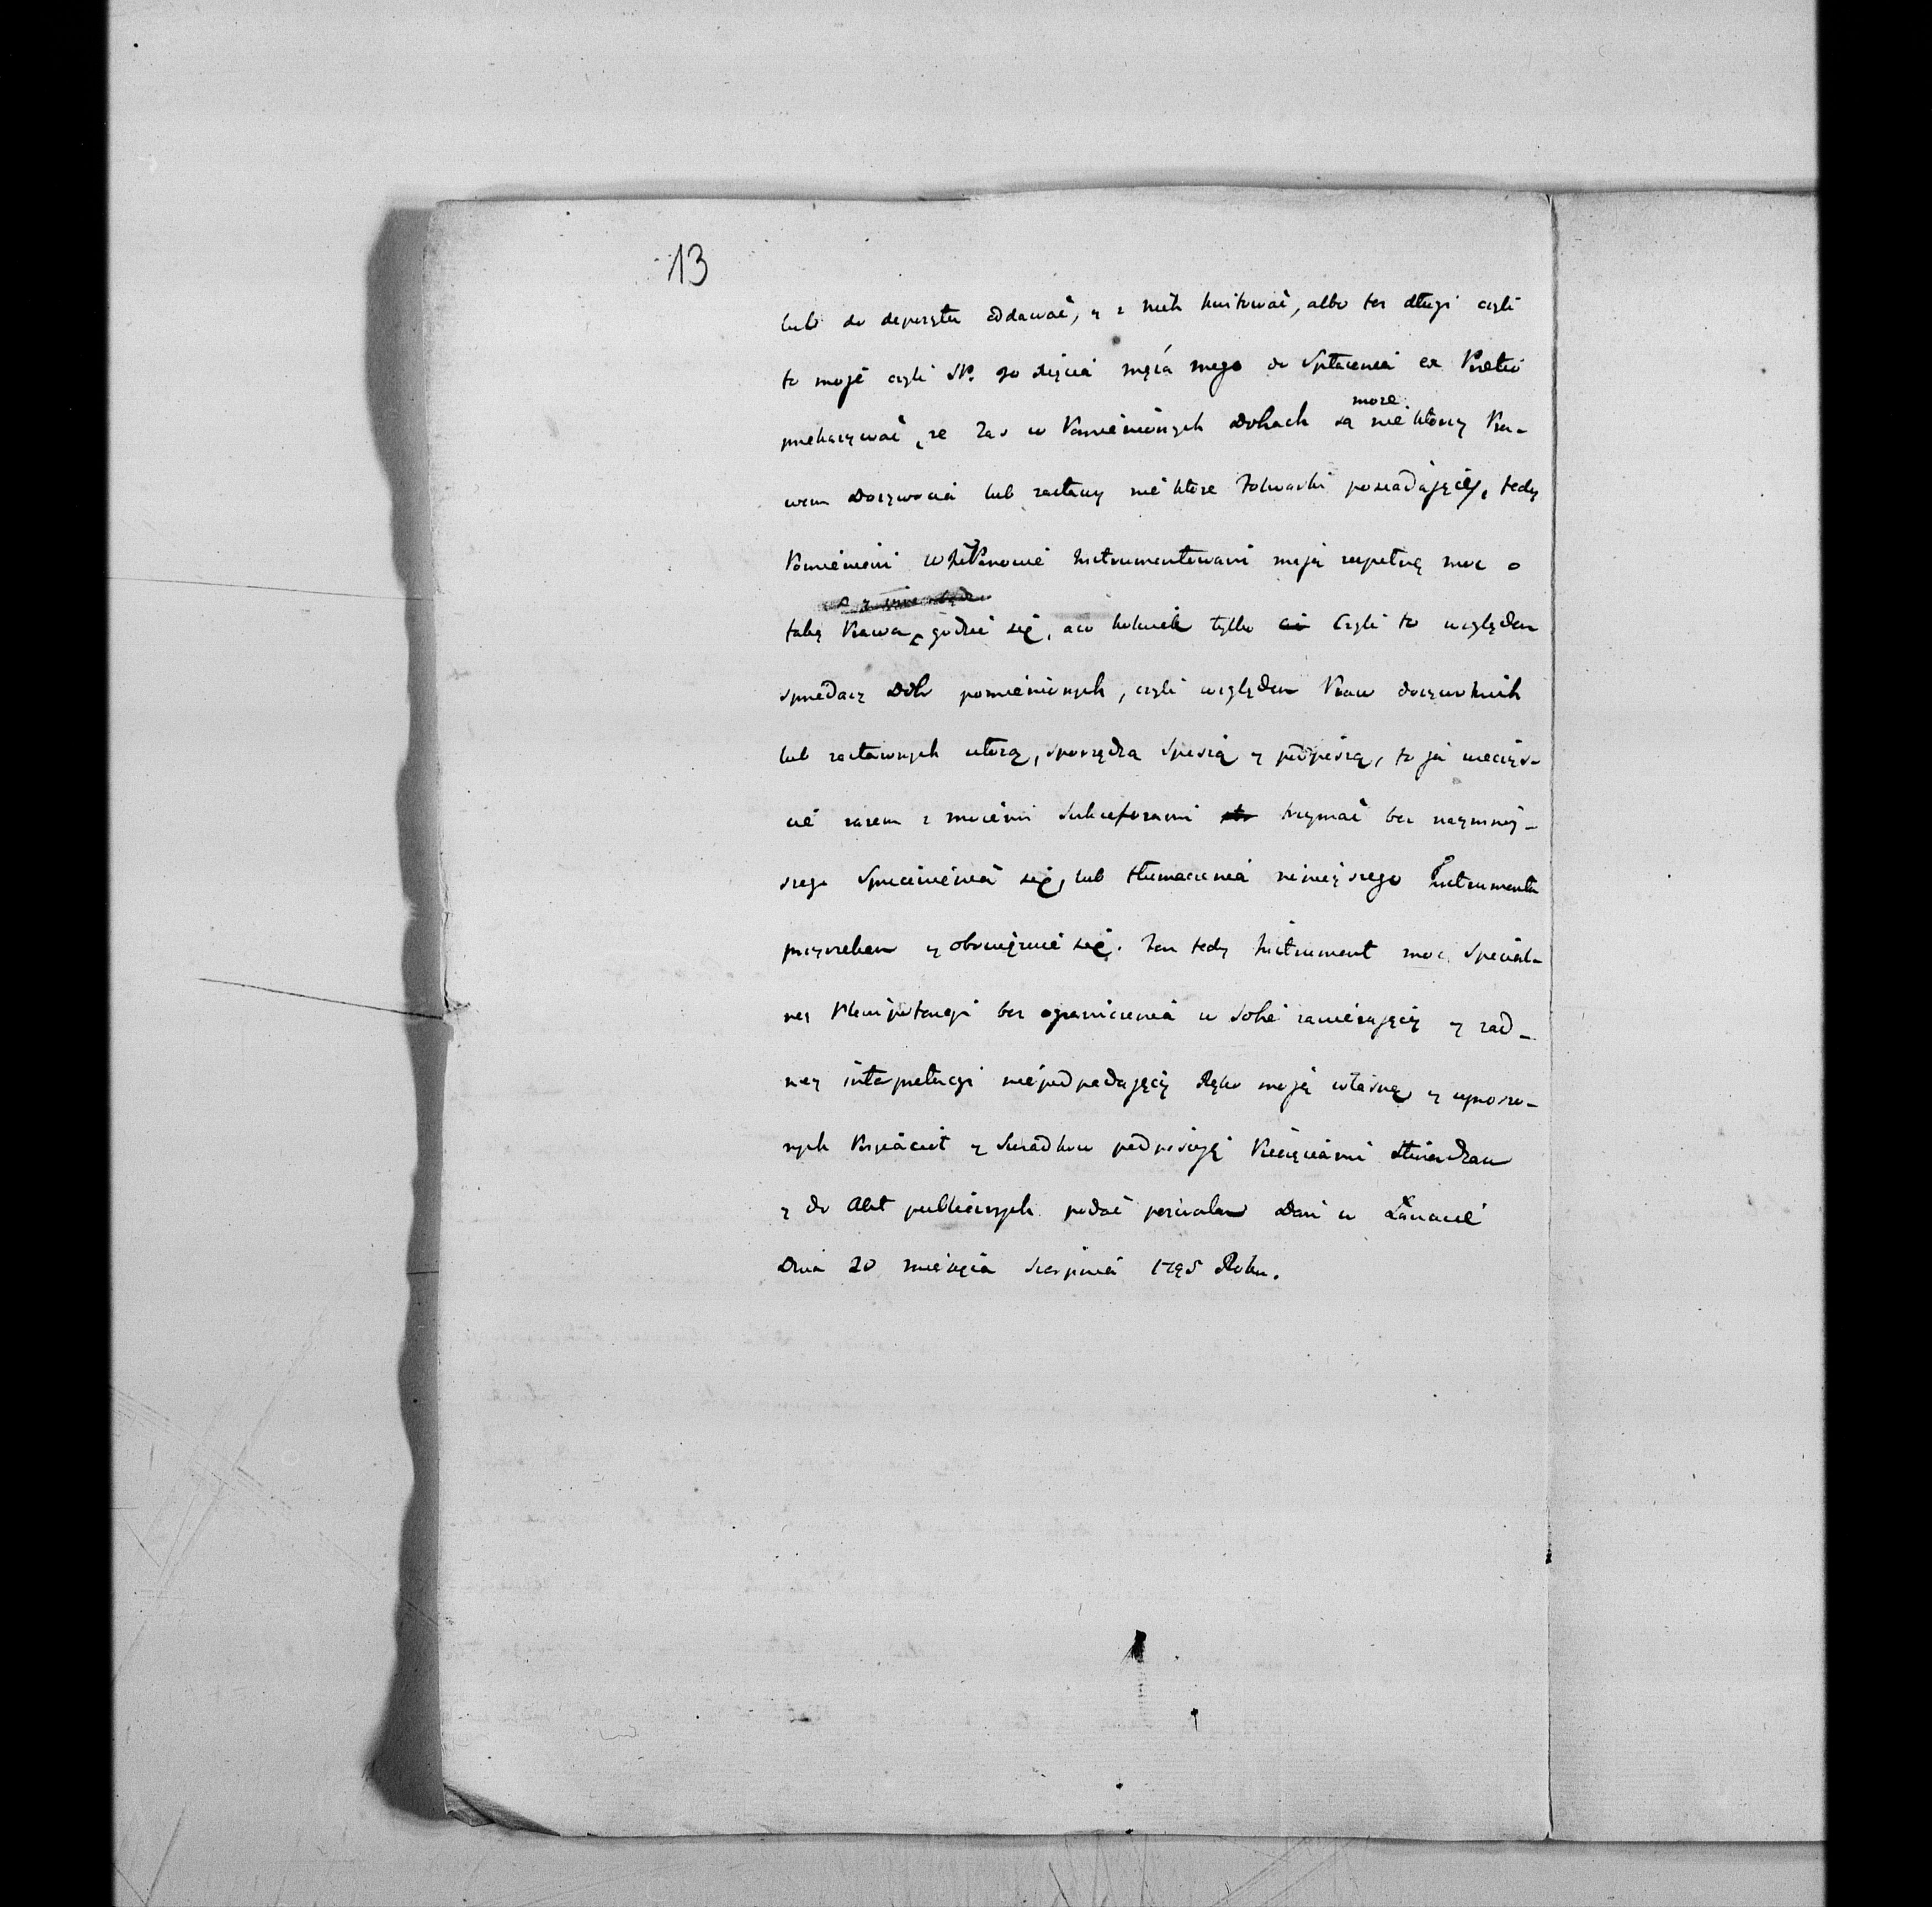 13
lub do depozytu oddawać, y z nich kwitować, albo tez długi czyli
to moje czyli SP. JO Xięcia męża mego do Spłacenia ex Pretio
przekazywać, ze zas w Pomienionych Dobach są moze niektórzy Pra-
wem Dozywocia lub zastawy niektóre Folwarki posiadający, tedy
Pomienieni WJchPanowie Instrumentowani mają zupełną moc o
takę Prawa godzić się, a co kolwiek tylko Czyli to względem
sprzedazy Dobr pomienionych, czyli względem Praw dozywotnich
lub zastawnych ułozą, sporządzą Spiszą y podpiszą, to ja uiscić
cie razem z moiemi Sukcessorami trzymać bez naymniey-
szego Sprzeciwienia się, lub tłumaczenia ninieyszego Instrumentu
przyrzekam y obowięzuie się. Ten tedy Instrument moc Specyal-
ney Plenipotencyi bez ograniczenia w Sobie zawierający y zad-
ney interpretacyi niepodpadający Ręką moją własną y uproszo-
nych Przyiacioł y Swiadkow podpisuję Pieczęciami stwierdzam
y do Akt publicznych podać pozwalam Dan w Łancucie
Dnia 20 miesięca Sierpnia 1795 Roku.